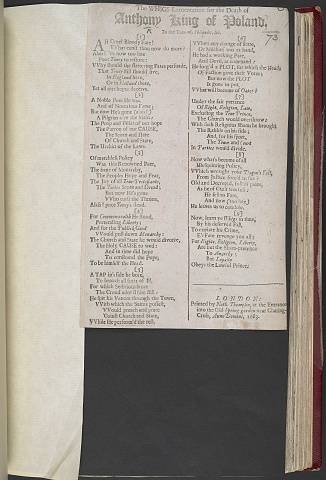 The WHIGS Lamentation for the Death of
Anthony King of Poland.
73
(1)
AH Cruel Bloody Fate!
What canst thou now do more?
Alas! 'Tis now too late
Poor Tony to restore:
Why should the flattering Fates persuade,
That Tony still should live,
In England here,
Or in Holland there,
Yet all our hopes deceive.
(2)
A Noble Peer he was,
And of Notorious Fame;
But now he's gone (alas!)
A Pilgrim o'er the Main:
The Prop and Pillar of our hope
The Patron of our CAUSE,
The Scorn and Hate
Of Church and State,
The Urchin of the Laws.
(3)
Of matchless Policy
Was this Renowned Peer,
The bane of Monarchy,
The Peoples Hope and Fear,
The Joy of all True Protestants,
The Tories Scorn and Dread;
But now He's gone
Who curst the Throne,
Alas! poor Tony's dead.
(4)
For Commonwealth He stood,
Pretending Liberty;
And for the Publick Good
Would pull down Monarchy:
The Church and State he would divorce,
The Holy CAUSE to wed;
And in time did hope
To confound the Pope,
To be himself the Head.
(5)
A TAP in's side he bore,
For which Seditious store
He spit his Venom through the Town,
With which the Saints possest,
Would preach and prate
'Gainst Church and State,
While He perform'd the rest.
(6)
When any change of State,
Or Mischief was at hand,
He had a working Pate,
And Devil at command:
He forg'd a PLOT, for which the Heads
Of Faction gave their Votes;
But now the PLOT
Is gone to pot,
What will become of Oates?
(7)
Under the fair pretence
Of Right, Religion, Law,
Excluding the True Prince,
The Church would overthrow:
With such Religious Shams he brought
The Rabble on his side;
And, for his sport,
The Town and Court
In Parties would divide.
(8)
Now what's become of all
His squinting Policy,
Which wrought your Dagon's Fall,
From Justice forc'd to flie?
Old and Decrepid, full of pains,
As he of Old was full;
He fell to Fate,
And now (too late)
He leaves us to condole.
(9)
Now, learn ye Whigs in time,
By his deserved Fall,
To expiate his Crime,
E'r Fate revenge you all:
For Rights, Religion, Liberty,
Are but the sham-pretence
To Anarchy;
But Loyalty
Obeys the Lawful Prince.
LONDON:
Printed by Nath. Thompson, at the Entrance
into the Old Spring-garden near Charing-
Cross, Anno Domini, 1683.